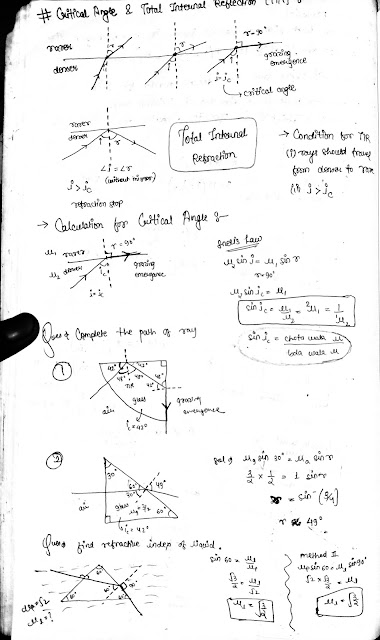 # Critical Angle & Total Internal Reflection (TIR) :-
rarer
denser
i
r
i
r
r=90°
grazing
emergence
i=ic
→ critical angle
rarer
denser
i
r
∠i = ∠r
(without mirror)
i > ic
refraction stop
Total Internal
Refraction
→ Condition for TIR
(i) rays should travel
from denser to rarer
(ii) i > ic
→ Calculation for Critical Angle :-
μ1 rarer
μ2 denser
r = 90°
ic
grazing
emergence
i=ic
Snell's Law
μ2 sin i = μ1 sin r
r=90°
μ2 sin ic = μ1
sin ic = μ1/μ2 = ²μ1 = 1/¹μ2
sin ic = chota wala μ / bada wala μ
Ques: Complete the path of ray
①
48°
42°
TIR
glass
air
ic=42°
grazing
emergence
②
30°
air
glass
μg=3/2
60°
30°
49°
60°
ic=42°
Sol: μg sin 30° = μa sin r
3/2 × 1/2 = 1 sin r
r = sin⁻¹(3/4)
r ≈ 49°
Ques: find refractive index of liquid.
60°
μp=√2
μl=?
sin 60 = μl/μp
√3/2 = μl/√2
μl = √(3/2)
method II
μp sin 60 = μl sin 90°
√2 × √3/2 = μl
μl = √(3/2)